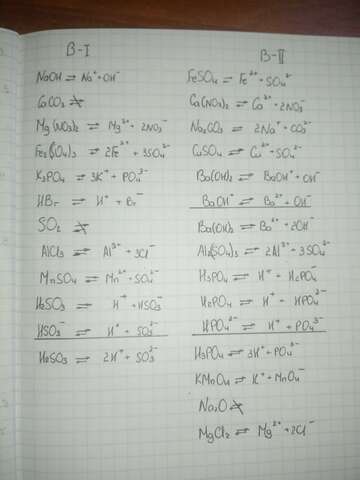 B-I
NaOH ⇌ Na⁺ + OH⁻
CaCO₃ ⇌̸
Mg(NO₃)₂ ⇌ Mg²⁺ + 2NO₃⁻
Fe₂(SO₄)₃ ⇌ 2Fe³⁺ + 3SO₄²⁻
K₃PO₄ ⇌ 3K⁺ + PO₄³⁻
HBr ⇌ H⁺ + Br⁻
SO₂ ⇌̸
AlCl₃ ⇌ Al³⁺ + 3Cl⁻
MnSO₄ ⇌ Mn²⁺ + SO₄²⁻
H₂SO₃ ⇌ H⁺ + HSO₃⁻
HSO₃⁻ ⇌ H⁺ + SO₃²⁻
H₂SO₃ ⇌ 2H⁺ + SO₃²⁻
B-II
FeSO₄ ⇌ Fe²⁺ + SO₄²⁻
Ca(NO₃)₂ ⇌ Ca²⁺ + 2NO₃⁻
Na₂CO₃ ⇌ 2Na⁺ + CO₃²⁻
CuSO₄ ⇌ Cu²⁺ + SO₄²⁻
Ba(OH)₂ ⇌ BaOH⁺ + OH⁻
BaOH⁺ ⇌ Ba²⁺ + OH⁻
Ba(OH)₂ ⇌ Ba²⁺ + 2OH⁻
Al₂(SO₄)₃ ⇌ 2Al³⁺ + 3SO₄²⁻
H₃PO₄ ⇌ H⁺ + H₂PO₄⁻
H₂PO₄⁻ ⇌ H⁺ + HPO₄²⁻
HPO₄²⁻ ⇌ H⁺ + PO₄³⁻
H₃PO₄ ⇌ 3H⁺ + PO₄³⁻
KMnO₄ ⇌ K⁺ + MnO₄⁻
Na₂O ⇌̸
MgCl₂ ⇌ Mg²⁺ + 2Cl⁻